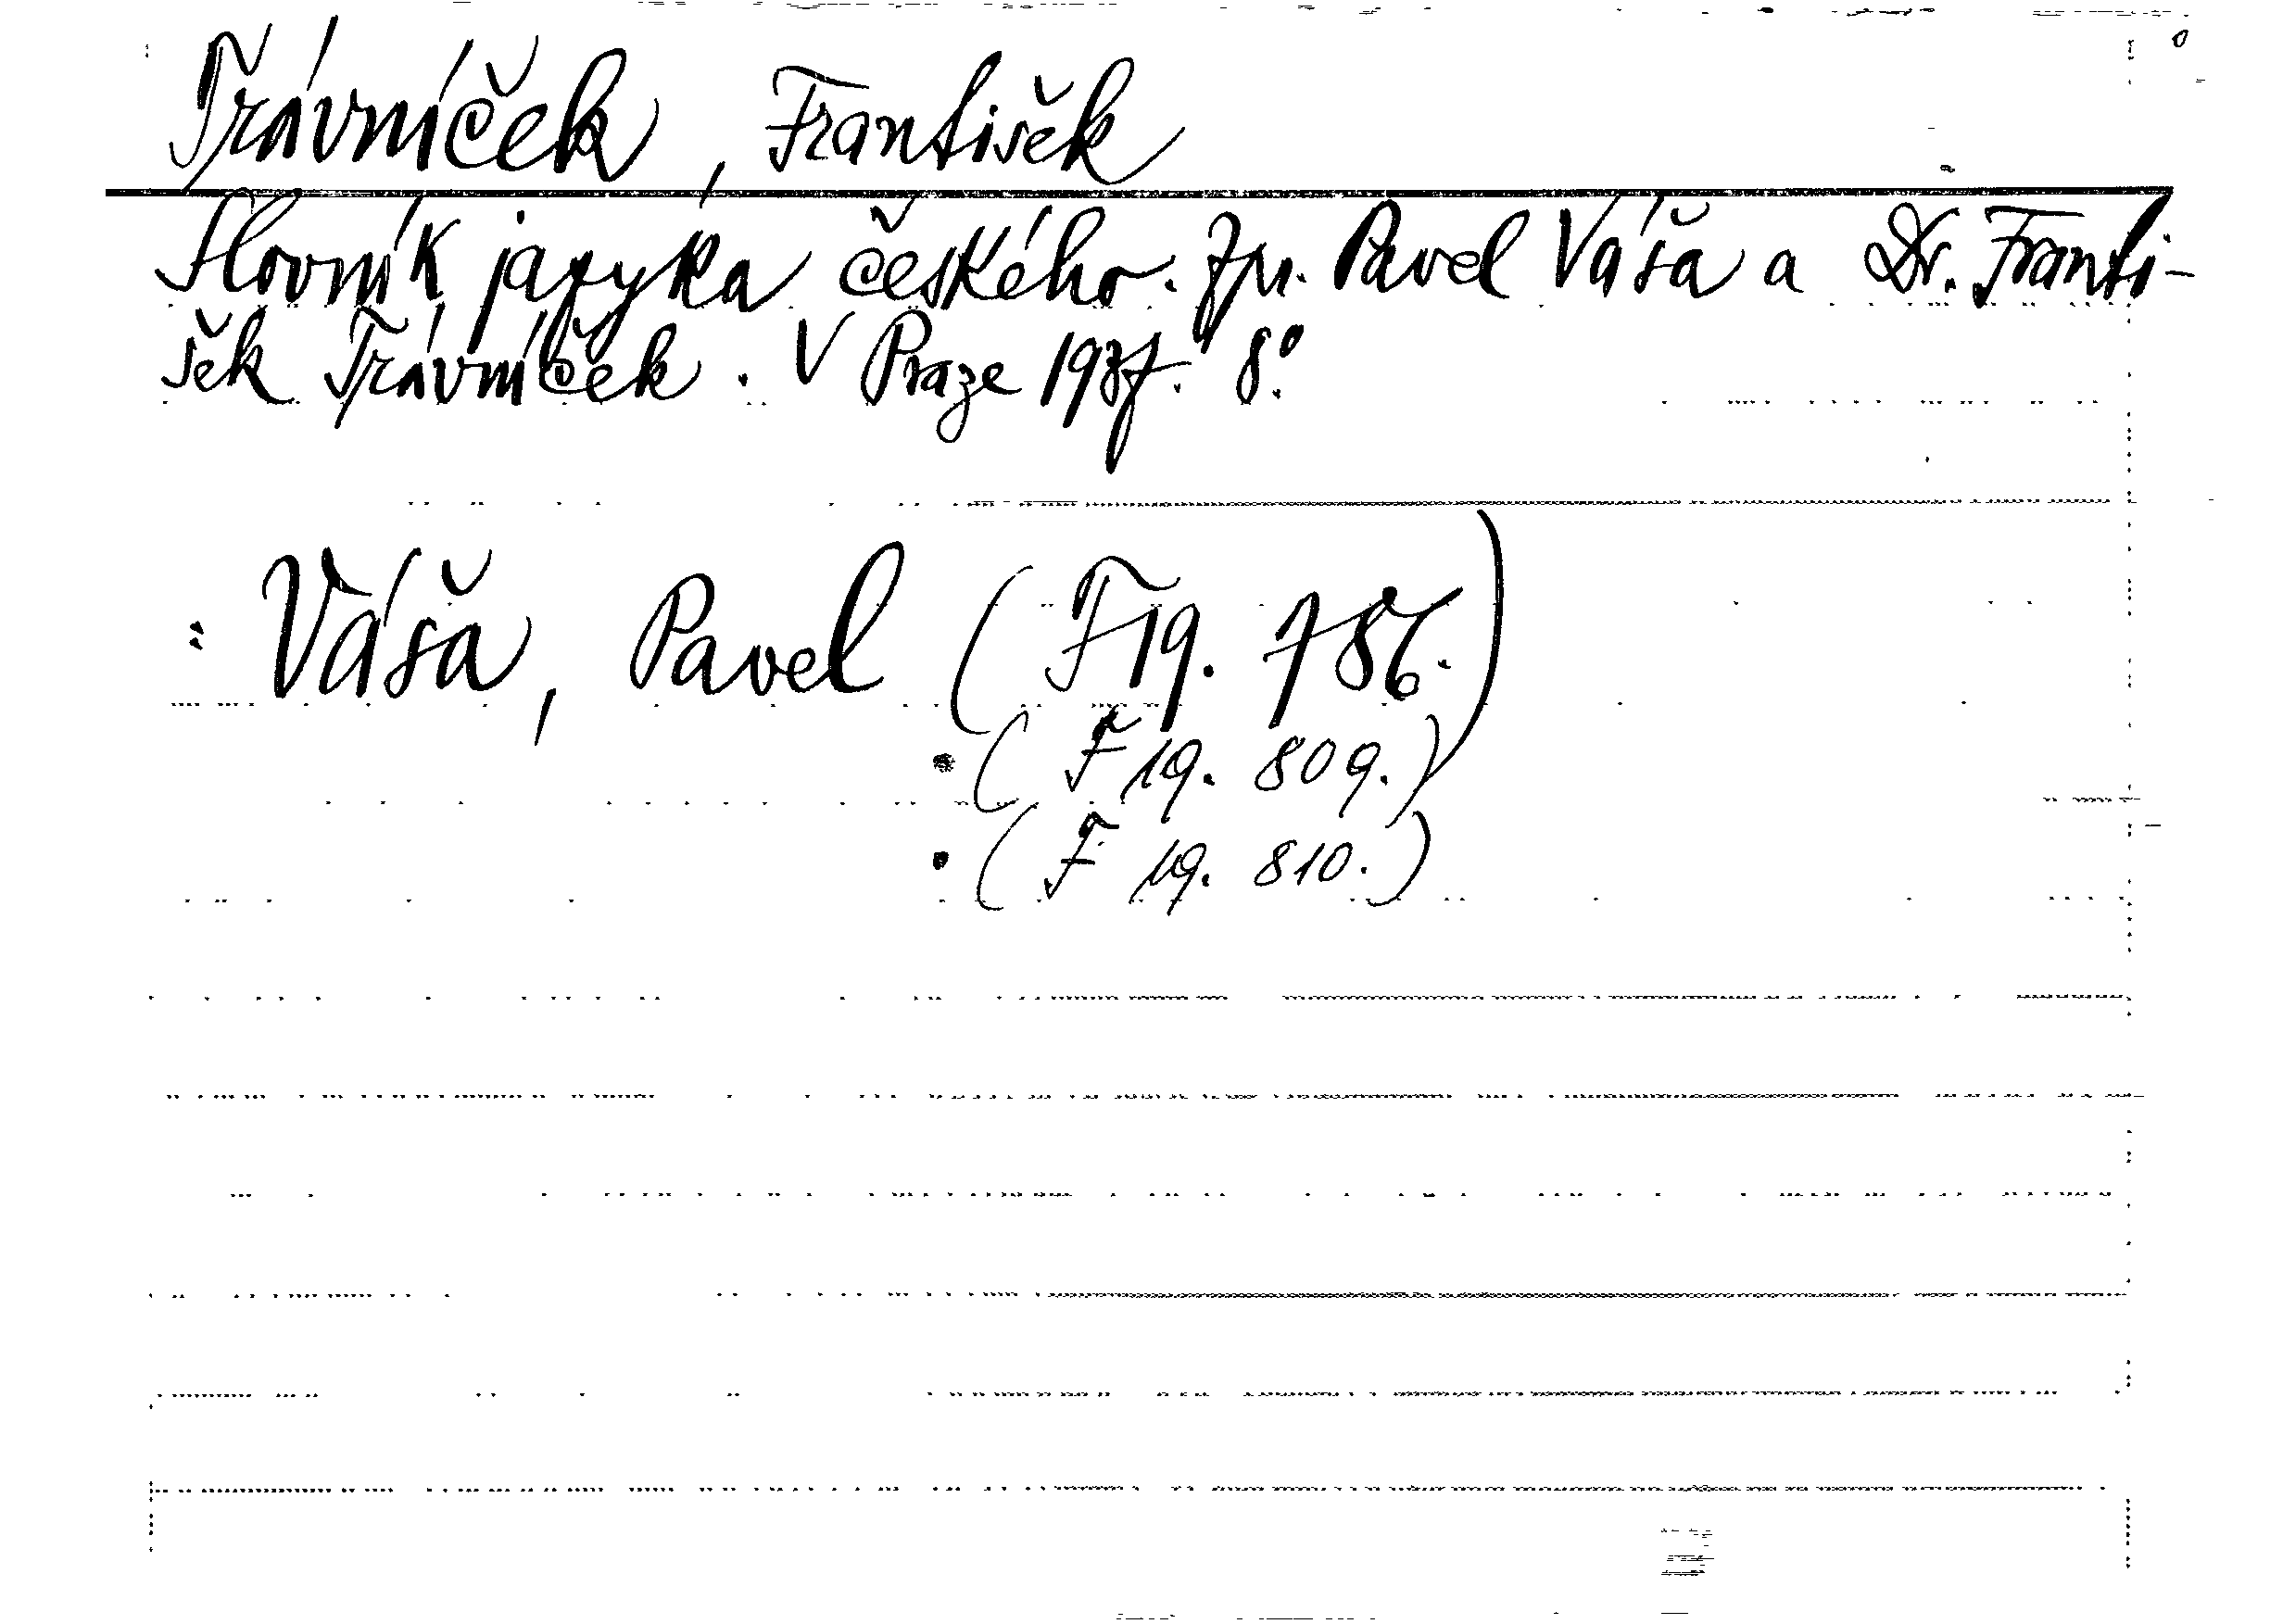 Trávníček, František
Slovník jazyka českého. Zpr. Pavel Váša a Dr. Franti-
šek Trávníček. V Praze 1937. 8°.
: Váša, Pavel (F 19. 786.)
(F 19. 809.)
(F 19. 810.)